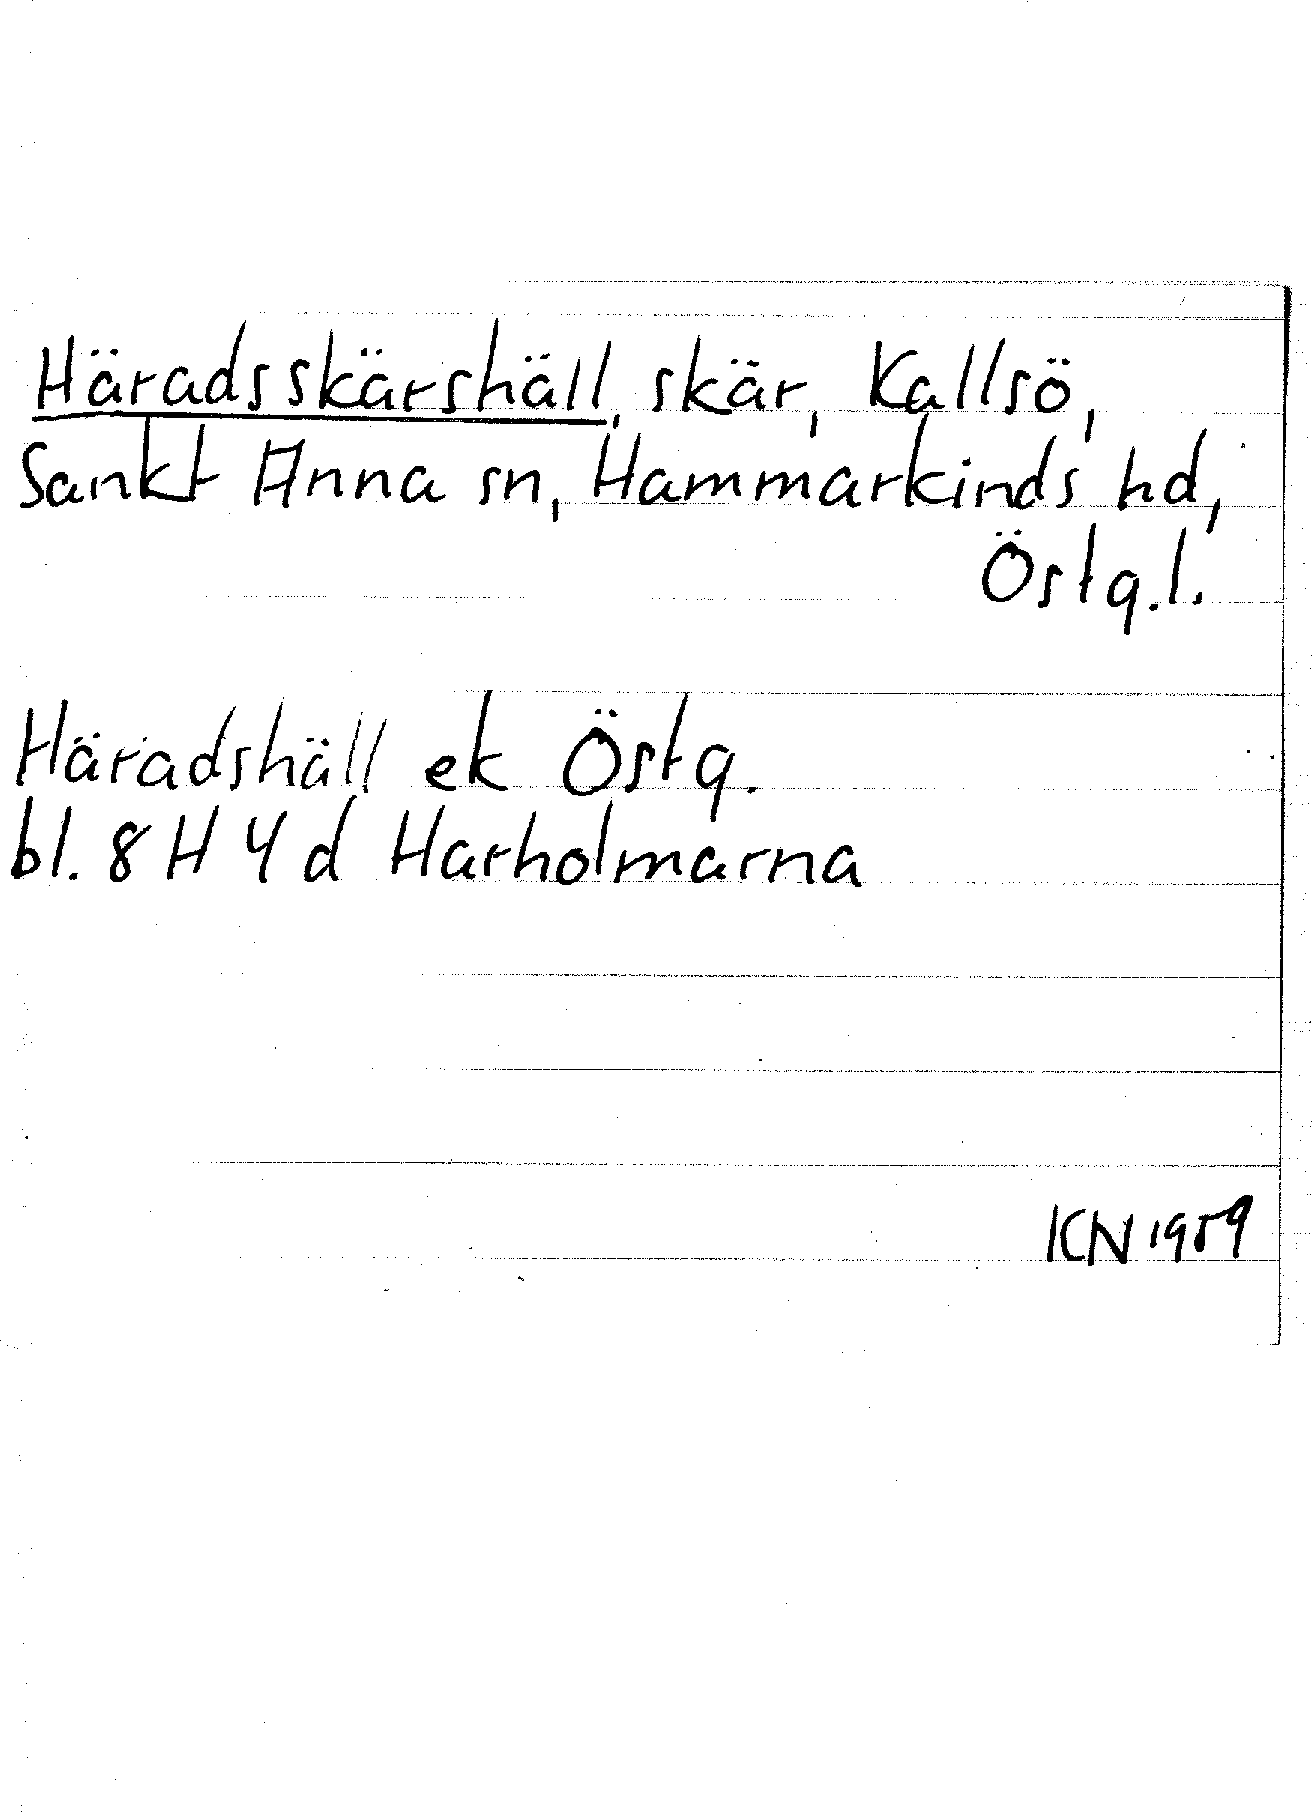 Häradsskärshäll, skär, Kallsö,
Sankt Anna sn, Hammarkinds hd,
Östg.l.
Häradshäll ek Östg.
bl. 8 H 4 d Harholmarna
KN 1959